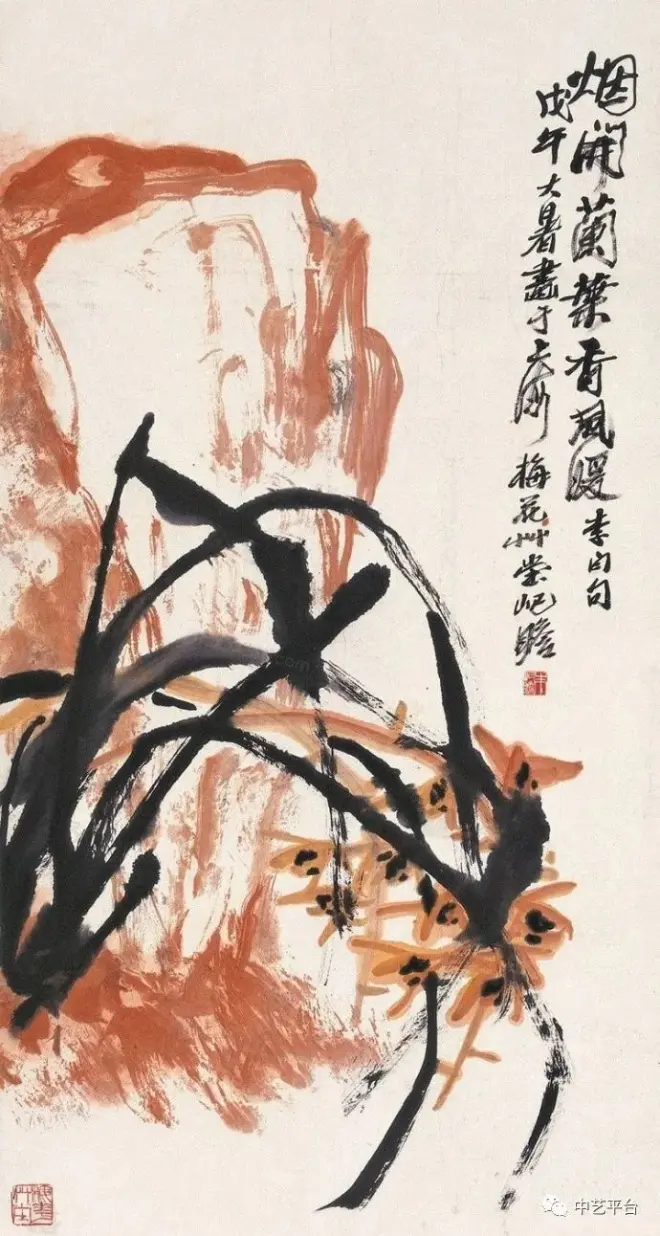 烟開蘭葉香風暖 李白句
戊午大暑畫于上海 梅花艸堂屺瞻
中艺平台